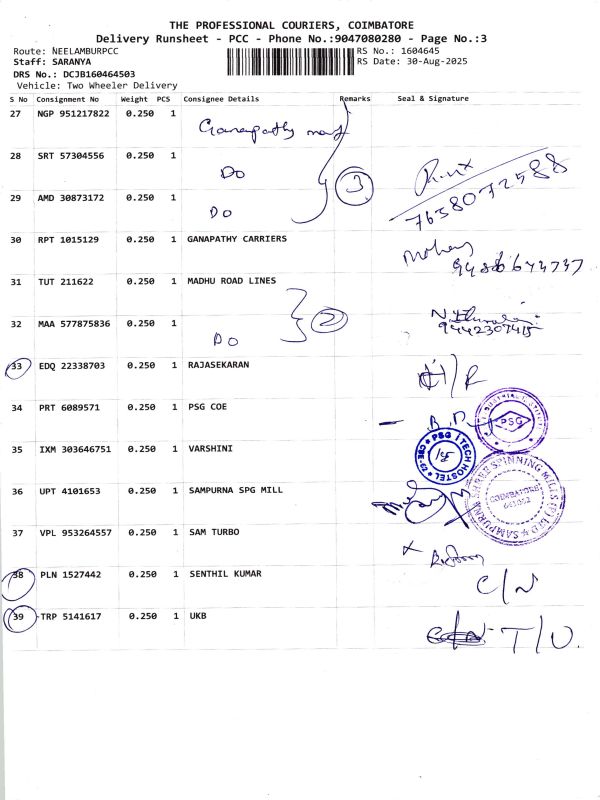 THE PROFESSIONAL COURIERS, COIMBATORE
Delivery Runsheet - PCC - Phone No.:9047080280 - Page No.:3
Route: NEELAMBURPCC RS No.: 1604645
Staff: SARANYA RS Date: 30-Aug-2025
DRS No.: DCJB160464503
Vehicle: Two Wheeler Delivery
S No Consignment No Weight PCS Consignee Details Remarks Seal & Signature
27 NGP 951217822 0.250 1 Ganapathy
28 SRT 57304556 0.250 1 DO
29 AMD 30873172 0.250 1 DO 3 7638072588
30 RPT 1015129 0.250 1 GANAPATHY CARRIERS
31 TUT 211622 0.250 1 MADHU ROAD LINES
32 MAA 577875836 0.250 1 DO 2 9442307415
33 EDQ 22338703 0.250 1 RAJASEKARAN
34 PRT 6089571 0.250 1 PSG COE PSG
35 IXM 303646751 0.250 1 VARSHINI PSG iTECH HOSTEL
36 UPT 4101653 0.250 1 SAMPURNA SPG MILL SAMPURNA SPINNING MILLS (P) LTD COIMBATORE
37 VPL 953264557 0.250 1 SAM TURBO
38 PLN 1527442 0.250 1 SENTHIL KUMAR C/N
39 TRP 5141617 0.250 1 UKB T/U.